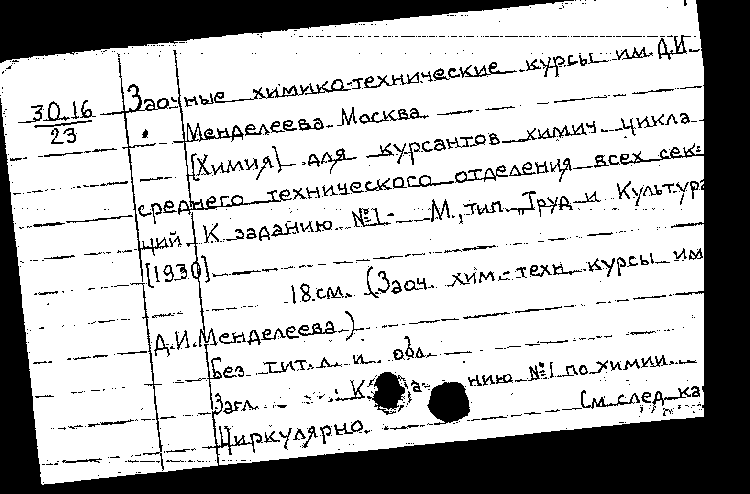 30.16
23
Заочные химико-технические курсы им. Д.И.
Менделеева. Москва.
[Химия] для курсантов химич. цикла
среднего технического отделения всех сек-
ций. К заданию №1- М., тип. "Труд и Культура
[1930].
18 см. (Заоч. хим.-техн. курсы им
Д.И. Менделеева.)
Без тит. л. и обл.
Загл. : К нию №1 по химии.
Циркулярно. См. след. ка